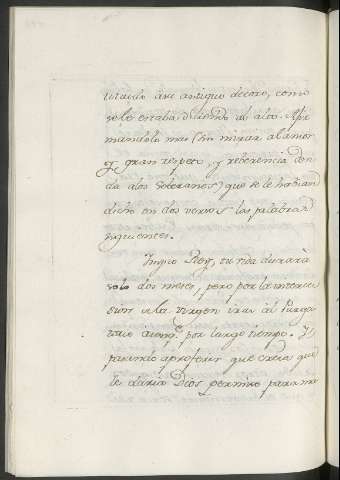 antiguo decoro, como
se le estaba diciendo de alto. Afir
mandolo mas (sin mirar al amor
y gran respeto, y reberencia
da a los soberanos) que se le habian
dicho en dos versos las palabras
siguientes.
Impio Rey, tu vida durará
solo dos meses, pero por la interce
sion de la Virgen iras al Purga
torio por largo tiempo. Y
pasando a proferir que creia que
le daria Dios permiso para